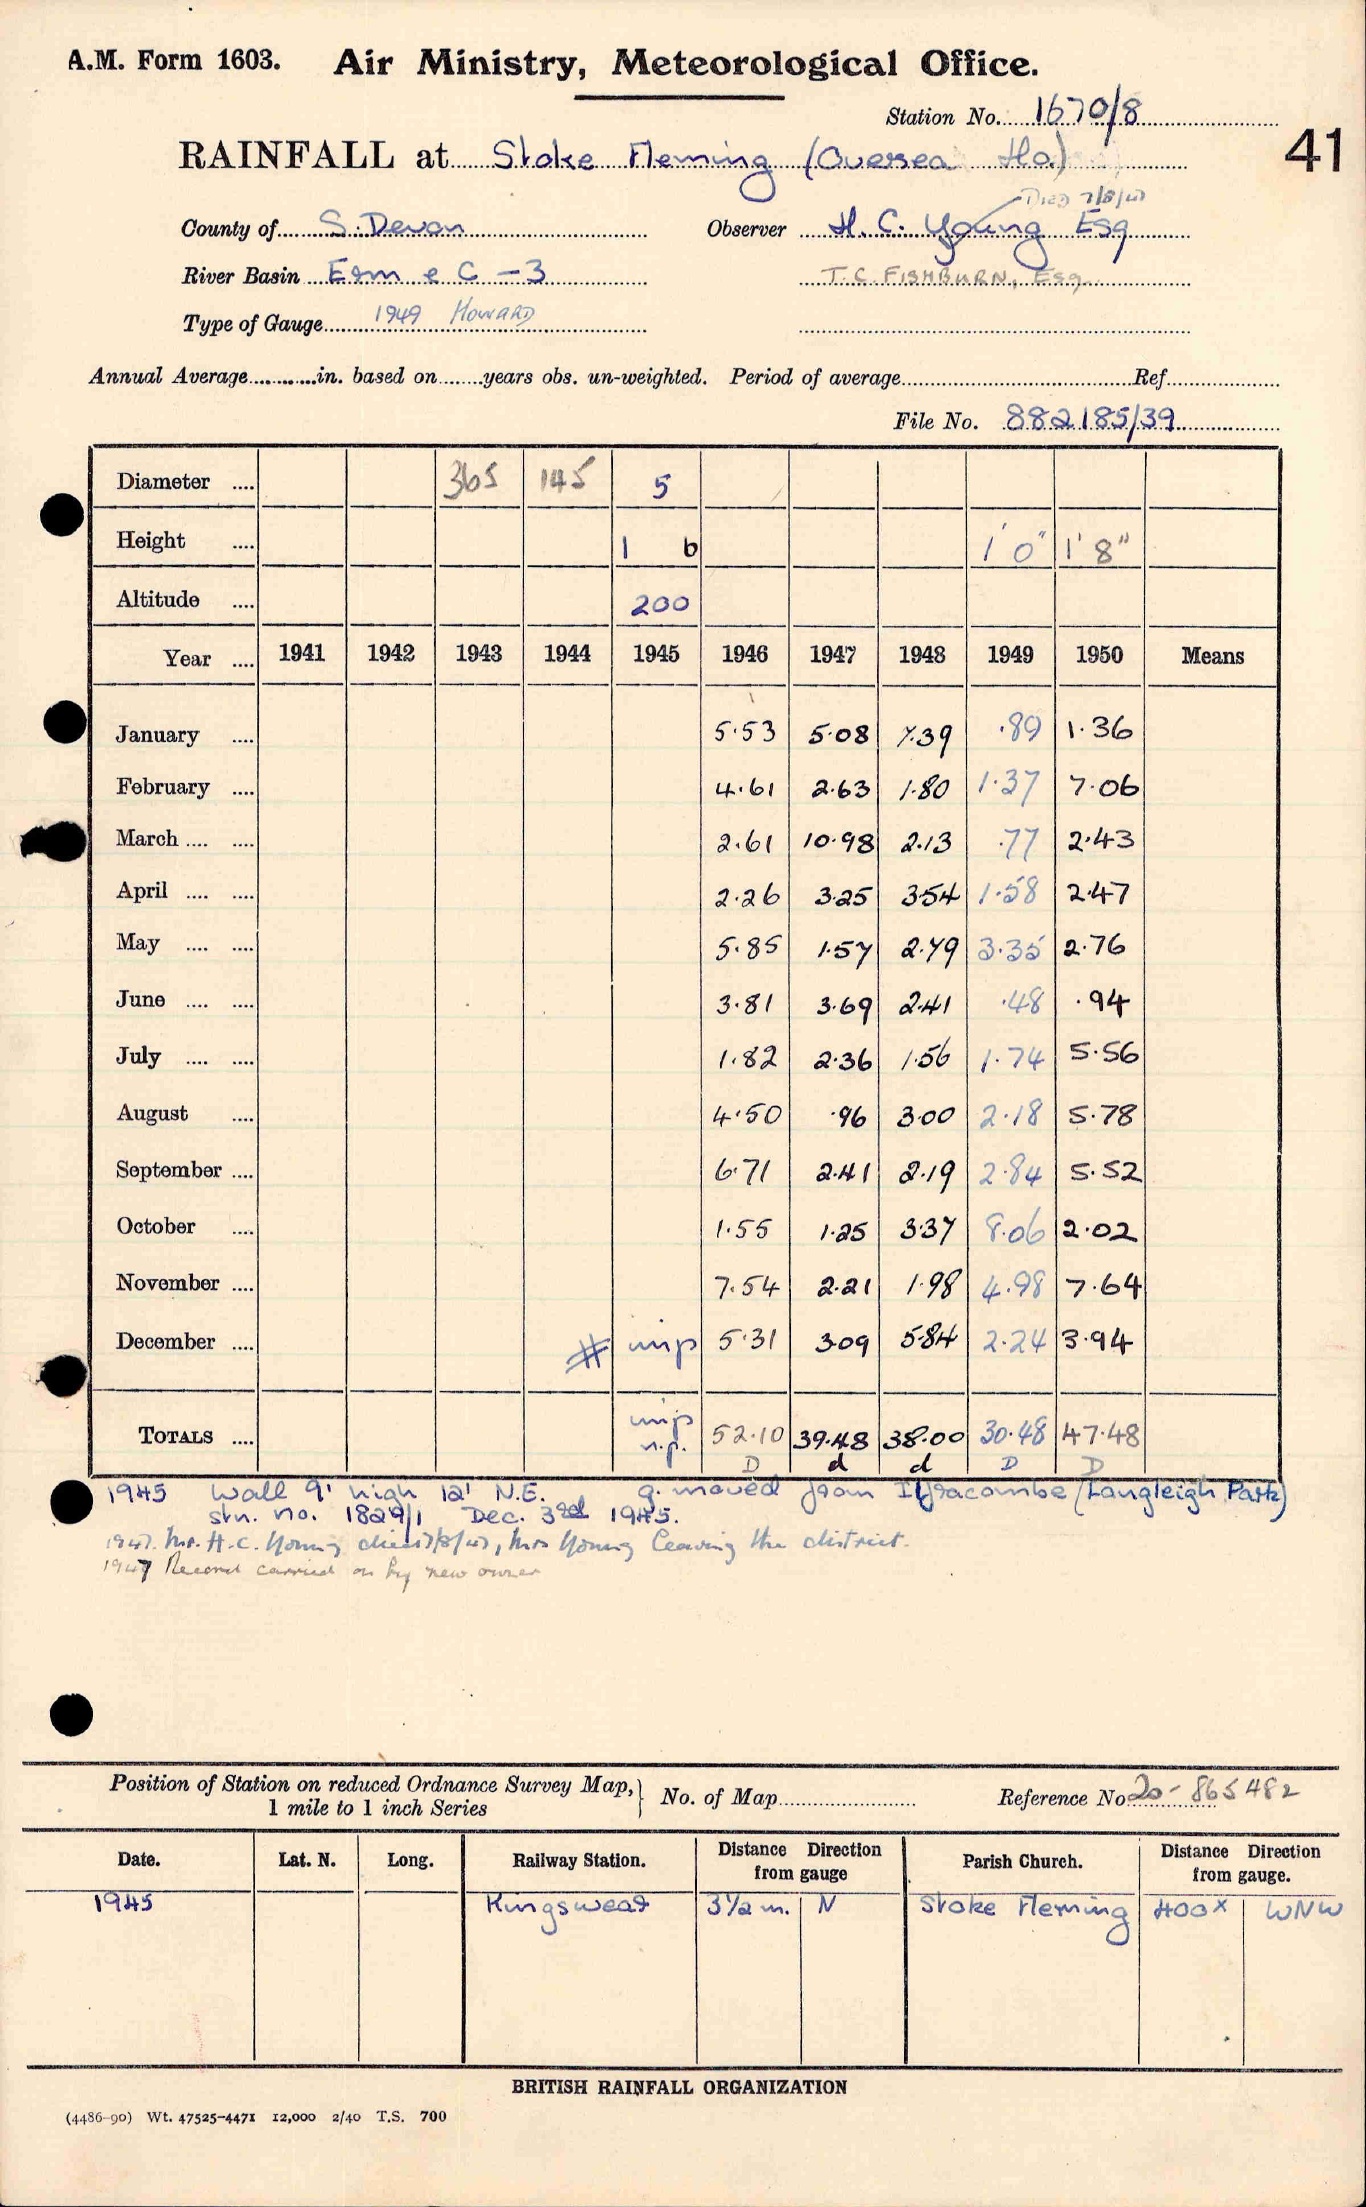 A.M. Form 1603. Air Ministry, Meteorological Office.
Station No. 1670/8
41
RAINFALL at Stoke Fleming (Oversea Ho.)
Died 7/8/47
County of S. Devon Observer H. C. Young Esq
River Basin Erm e C - 3 T. C. FISHBURN, Esq.
Type of Gauge 1949 HOWARD
Annual Average in. based on years obs. un-weighted. Period of average Ref
File No. 882185/39
Diameter 365 145 5
Height 1 6 1' 0" 1' 8"
Altitude 200
Year 1941 1942 1943 1944 1945 1946 1947 1948 1949 1950 Means
January 5.53 5.08 7.39 .89 1.36
February 4.61 2.63 1.80 1.37 7.06
March 2.61 10.98 2.13 .77 2.43
April 2.26 3.25 3.54 1.58 2.47
May 5.85 1.57 2.79 3.35 2.76
June 3.81 3.69 2.41 .48 .94
July 1.82 2.36 1.56 1.74 5.56
August 4.50 .96 3.00 2.18 5.78
September 6.71 2.41 2.19 2.84 5.52
October 1.55 1.25 3.37 8.06 2.02
November 7.54 2.21 1.98 4.98 7.64
December # imp 5.31 3.09 5.84 2.24 3.94
TOTALS imp n.p. 52.10 39.48 38.00 30.48 47.48
D d d D D
1945 Wall 9' high 12' N.E. g. moved from Ilfracombe (Langleigh Park)
stn. no. 1829/1 Dec. 3rd 1945.
1947 Mr. H. C. Young died 7/8/47, Mrs Young leaving the district.
1947 Record carried on by new owner
Position of Station on reduced Ordnance Survey Map, 1 mile to 1 inch Series } No. of Map Reference No. 20 - 865482
Date. Lat. N. Long. Railway Station. Distance Direction from gauge Parish Church. Distance Direction from gauge.
1945 Kingswear 3½ m. N Stoke Fleming 400x WNW
BRITISH RAINFALL ORGANIZATION
(4486-90) Wt. 47525-4471 12,000 2/40 T.S. 700